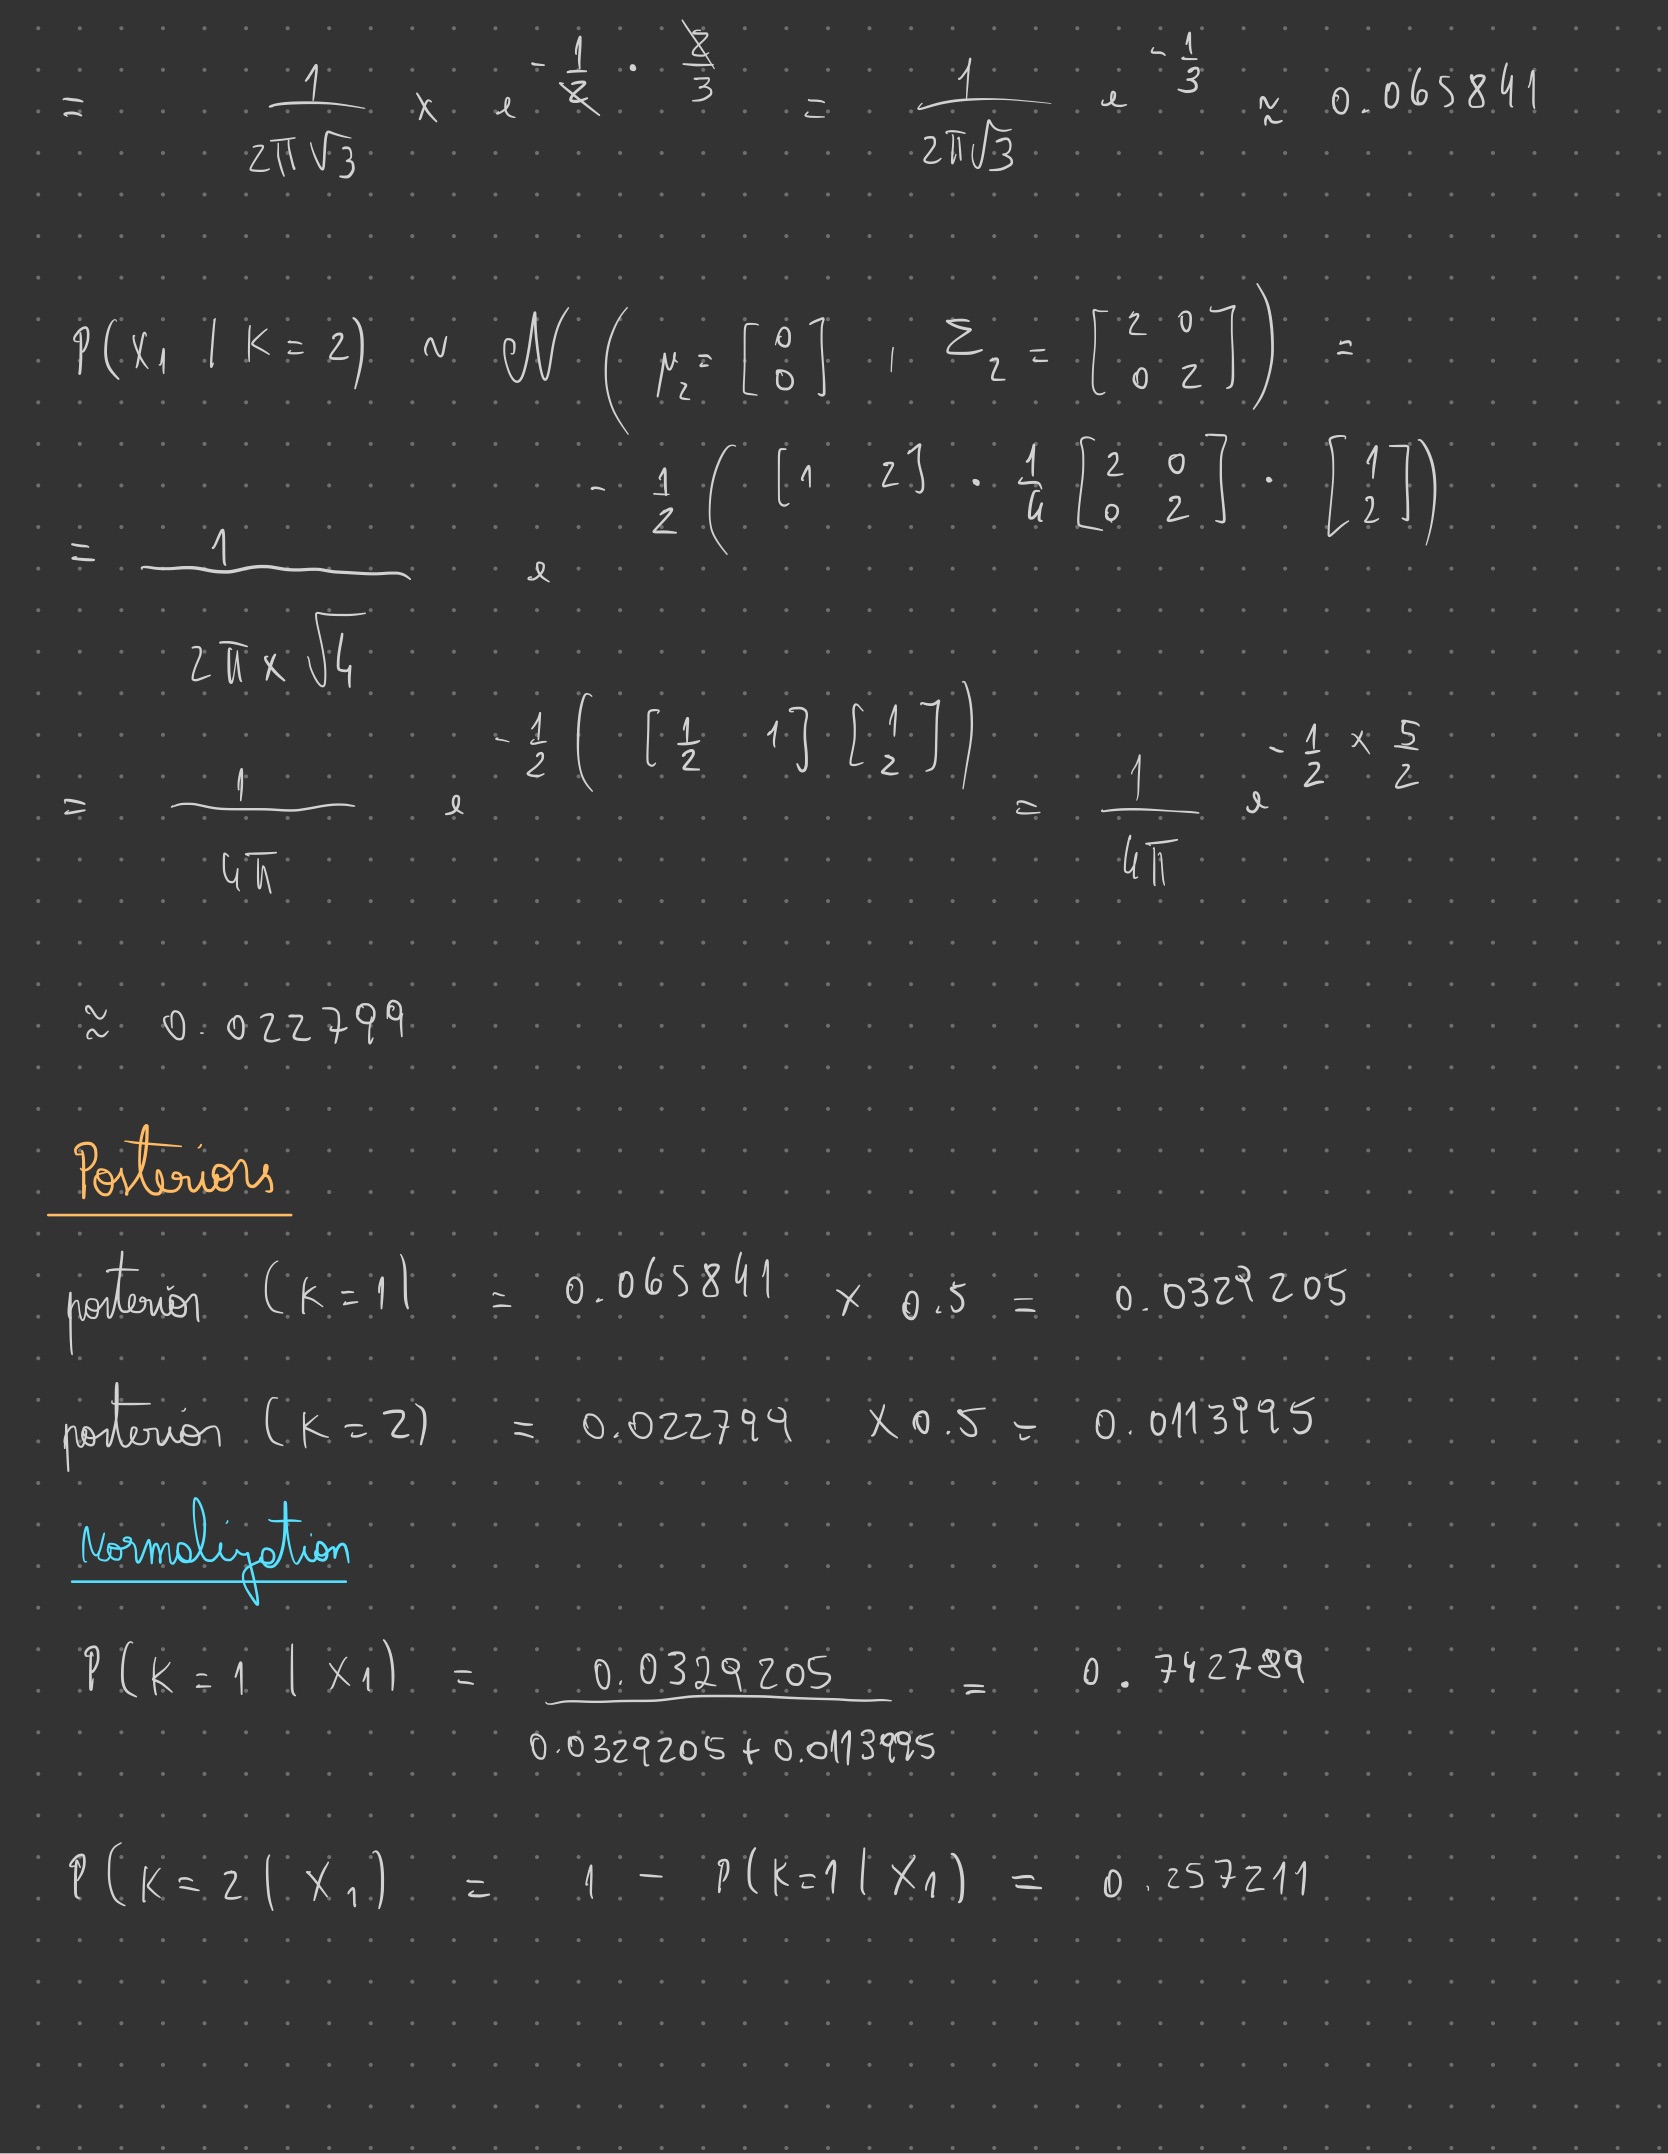 = 1/(2π√3) × e^(-1/2 · 2/3) = 1/(2π√3) e^(-1/3) ≈ 0.065841
P(x₁ | K = 2) ~ N(μ₂ = [0 0], Σ₂ = [2 0 0 2]) =
= 1/(2π × √4) e^(-1/2 ([1 2] · 1/4 [2 0 0 2] · [1 2]))
= 1/(4π) e^(-1/2 ([1/2 1] [1 2])) = 1/(4π) e^(-1/2 × 5/2)
≈ 0.022799
Posteriors
posterior (K = 1) = 0.065841 × 0.5 = 0.0329205
posterior (K = 2) = 0.022799 × 0.5 = 0.0113995
Normalization
P(K = 1 | x₁) = 0.0329205/(0.0329205 + 0.0113995) = 0.742789
P(K = 2 | x₁) = 1 - P(K = 1 | x₁) = 0.257211